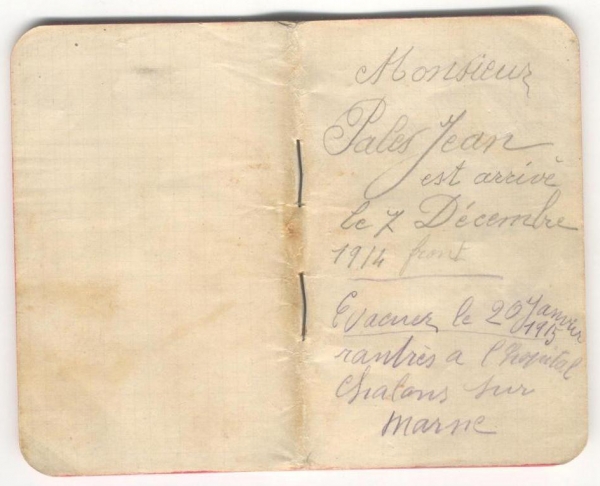 Monsieur
Pales Jean
est arrivé
le 7 Décembre
1914 front
Evacuer le 20 Janvier
1915
rantrès a l'hopital
Chalons sur
marne